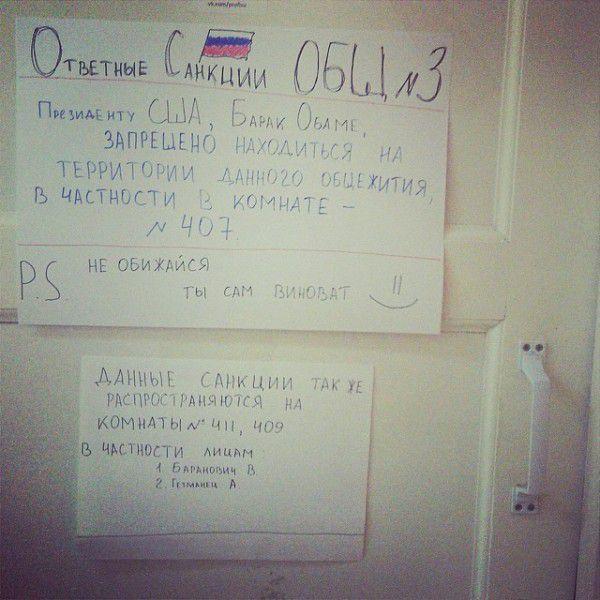 vk.com/profsu
Ответные Санкции ОБЩ №3
Президенту США, Барак Обаме,
ЗАПРЕЩЕНО НАХОДИТЬСЯ НА
ТЕРРИТОРИИ ДАННОГО ОБЩЕЖИТИЯ,
В ЧАСТНОСТИ В КОМНАТЕ –
№ 407.
P.S. НЕ ОБИЖАЙСЯ
ТЫ САМ ВИНОВАТ
ДАННЫЕ САНКЦИИ ТАК ЖЕ
РАСПРОСТРАНЯЮТСЯ НА
КОМНАТЫ № 411, 409
В ЧАСТНОСТИ ЛИЦАМ
1. БАРАНОВИЧ В.
2. ГЕТМАНЕЦ А.